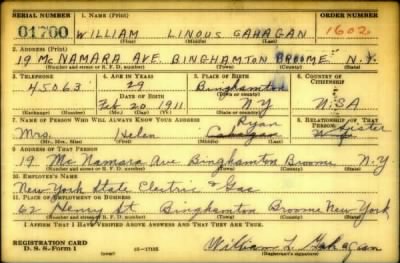 SERIAL NUMBER 1. NAME (Print) ORDER NUMBER
01700 WILLIAM LINOUS GAHAGAN 1602
(First) (Middle) (Last)
2. ADDRESS (Print)
19 McNAMARA AVE. BINGHAMTON BROOME N.Y.
(Number and street or R. F. D. number) (Town) (County) (State)
3. TELEPHONE 4. AGE IN YEARS 5. PLACE OF BIRTH 6. COUNTRY OF CITIZENSHIP
45063 29 Binghamton
DATE OF BIRTH (Town or county)
Feb 20 1911 NY USA
(Exchange) (Number) (Mo.) (Day) (Yr.) (State or country)
7. NAME OF PERSON WHO WILL ALWAYS KNOW YOUR ADDRESS 8. RELATIONSHIP OF THAT PERSON
Ryan Sister
Mrs. Helen Gahagan
(Mr., Mrs., Miss) (First) (Middle) (Last)
9. ADDRESS OF THAT PERSON
19 McNamara Ave Binghamton Broome N.Y
(Number and street or R. F. D. number) (Town) (County) (State)
10. EMPLOYER'S NAME
New York State Electric & Gas
11. PLACE OF EMPLOYMENT OR BUSINESS
62 Henry St Binghamton Broome New York
(Number and street or R. F. D. number) (Town) (County) (State)
I AFFIRM THAT I HAVE VERIFIED ABOVE ANSWERS AND THAT THEY ARE TRUE.
REGISTRATION CARD
D. S. S. Form 1 (over) William L. Gahagan
(Registrant's signature)